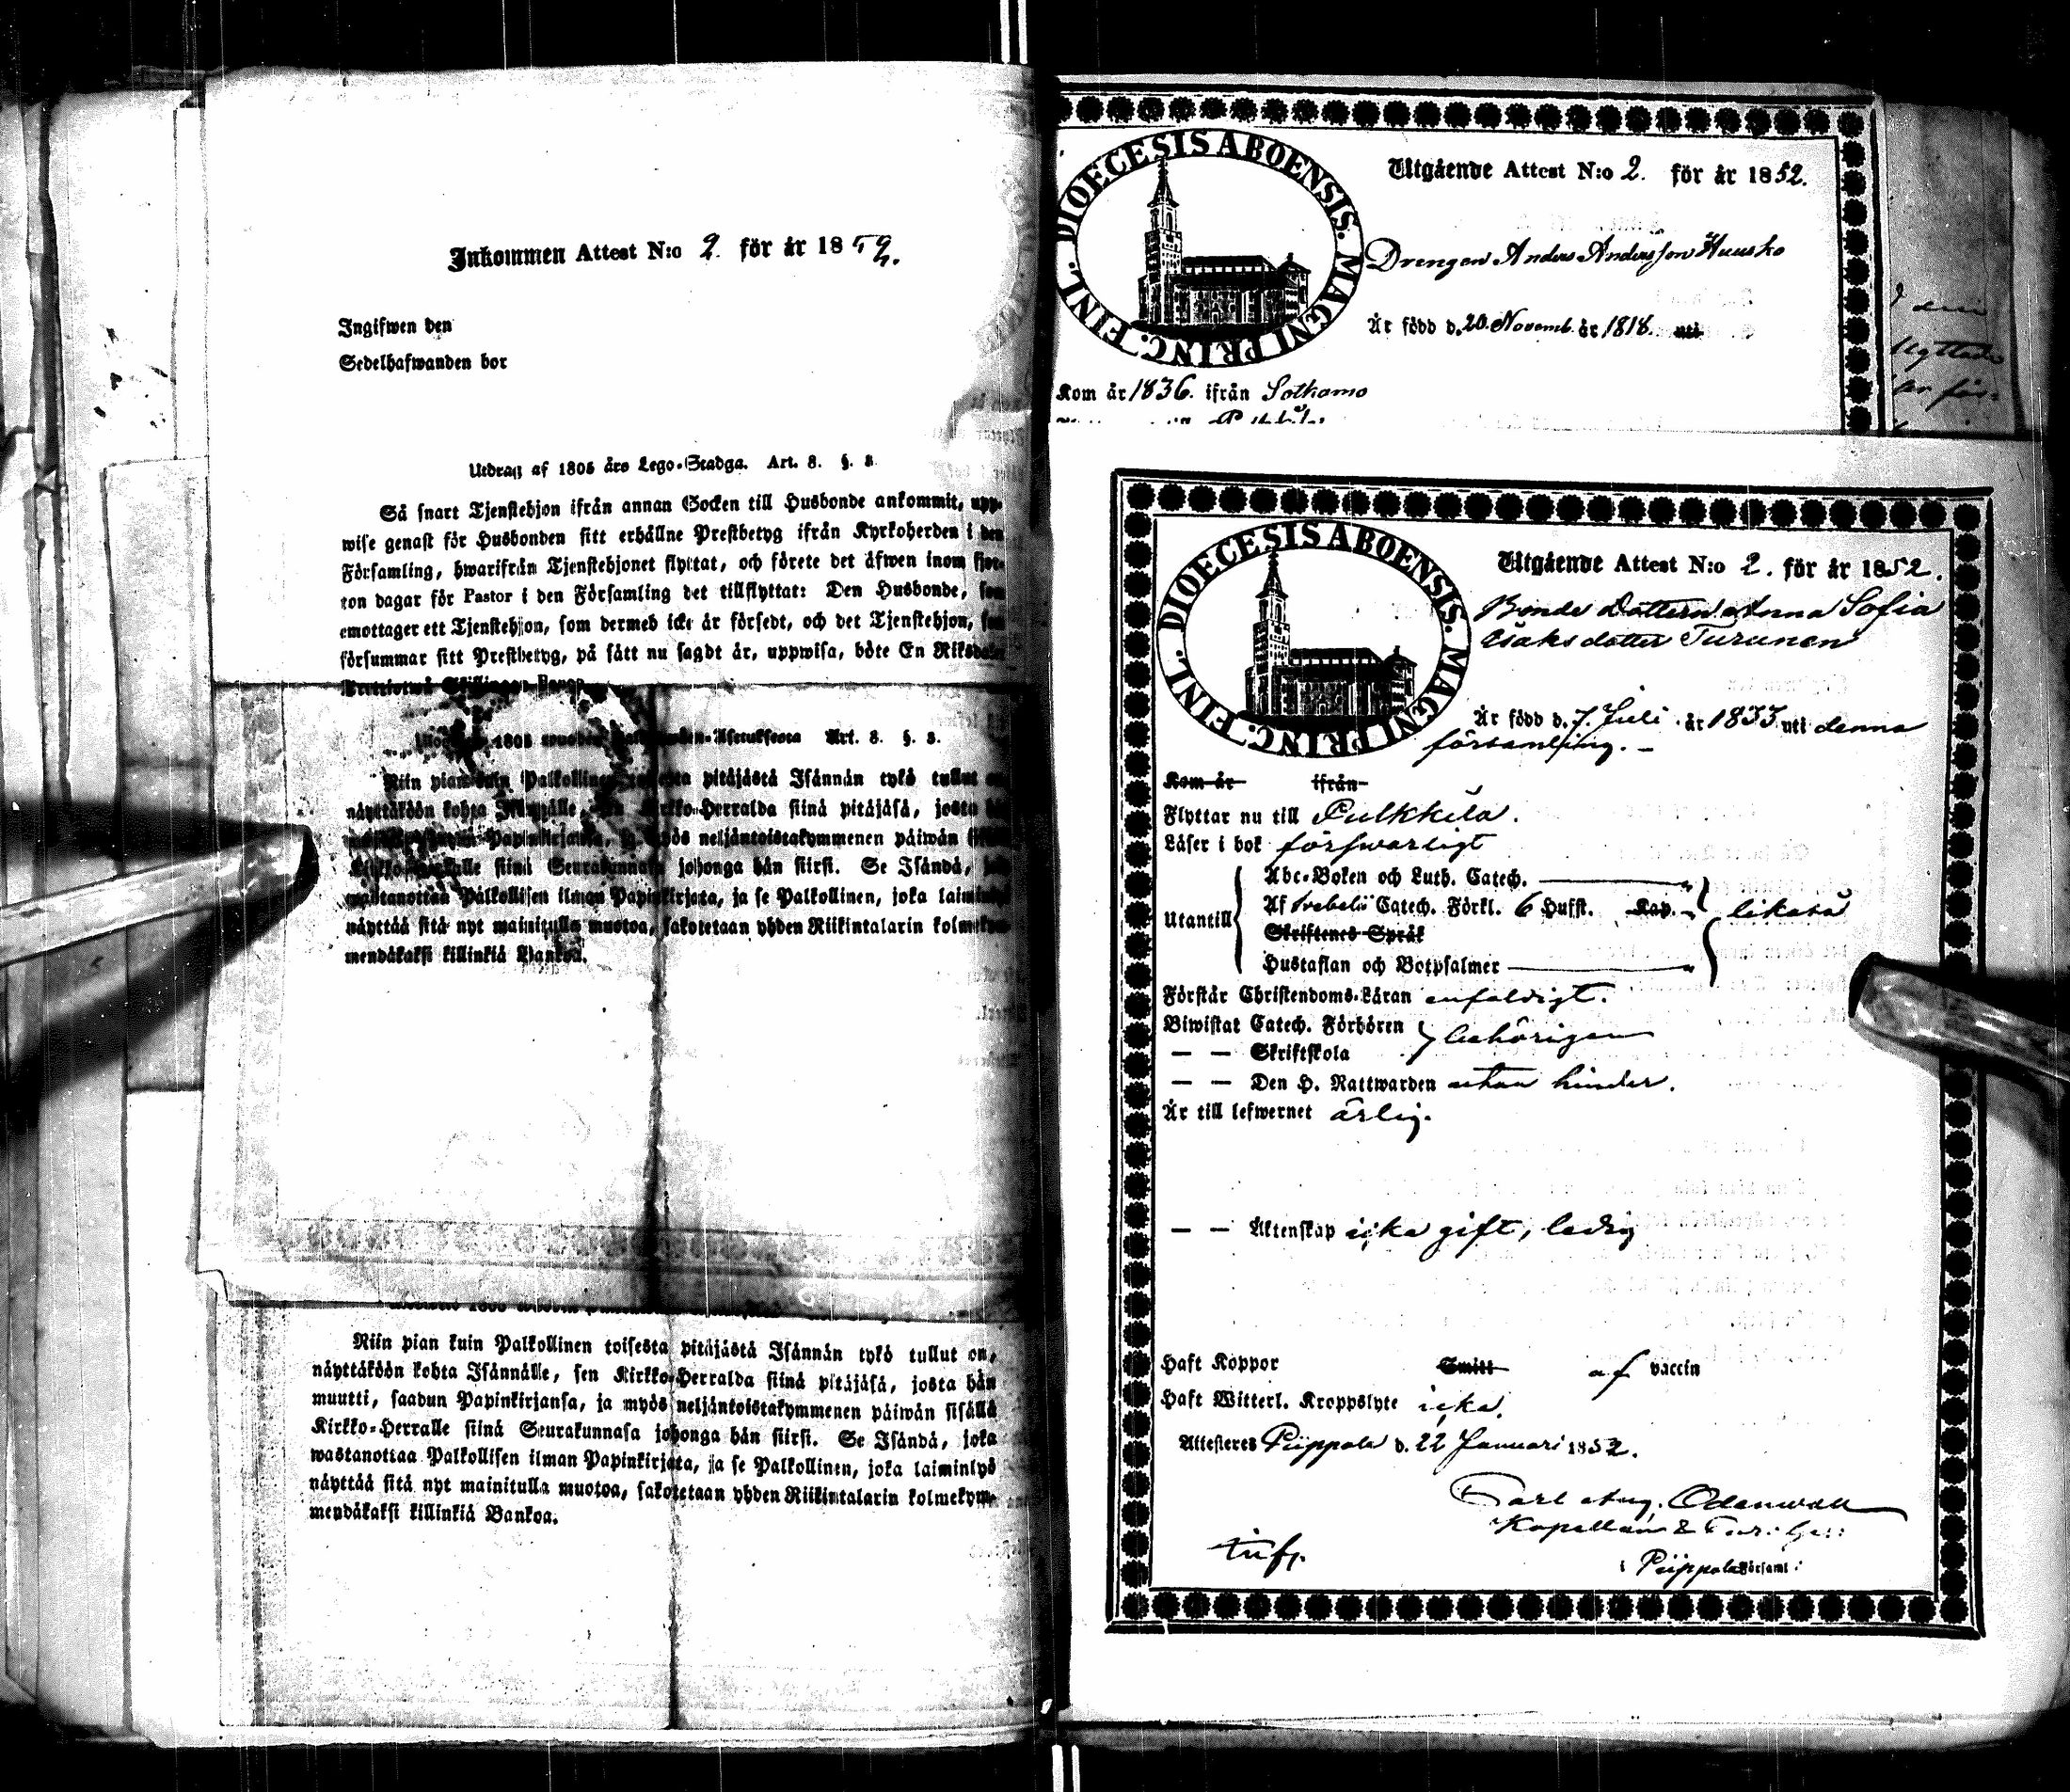 Inkommen Attest N:o 2. för år 1852.
Ingifwen den
Sedelhafwanden bor
Utdrag af 1805 års Lego-Stadga. Art. 8. §. 3.
Så snart Tjenstehjon ifrån annan Socken till Husbonde ankommit, upp-
wise genast för Husbonden sitt erhållne Prestbetyg ifrån Kyrkoherden i den
Församling, hwarifrån Tjenstehjonet flyttat, och förete det äfwen inom fjor-
ton dagar för Pastor i den Församling det tillflyttat: Den Husbonde, som
emottager ett Tjenstehjon, som dermed icke är försedt, och det Tjenstehjon, som
försummar sitt Prestbetyg, på sätt nu sagdt är, uppwisa, böte En Riksdaler
1805 Art. 8. §. 3.
Niin pian kuin Palkollinen pitäjästä Isännän tykö tullut on
näyttäköön kohta Isännälle, Kirkko-Herralda siinä pitäjäsä, josta hän
Papinkirjansa, ja myös neljäntoistakymmenen päiwän
siinä Seurakunnasa johonga hän siirsi. Se Isändä,
wastanottaa Palkollisen ilman Papinkirjata, ja se Palkollinen, joka laiminlyö
näyttää sitä nyt mainitulla muotoa, sakotetaan yhden Riikintalarin kolmekym-
mendäkaksi killinkiä Bankoa.
Niin pian kuin Palkollinen toisesta pitäjästä Isännän tykö tullut on,
näyttäköön kohta Isännälle, sen Kirkko-Herralda siinä pitäjäsä, josta hän
muutti, saadun Papinkirjansa, ja myös neljäntoistakymmenen päiwän sisällä
Kirkko-Herralle siinä Seurakunnasa johonga hän siirsi. Se Isändä, joka
wastanottaa Palkollisen ilman Papinkirjata, ja se Palkollinen, joka laiminlyö
näyttää sitä nyt mainitulla muotoa, sakotetaan yhden Riikintalarin kolmekym-
mendäkaksi killinkiä Bankoa.
DIOECESIS ABOENSIS. MAGNI PRINC. FINL.
Utgående Attest N:o 2. för år 1852.
Drengen Anders Andersson Huusko
Är född d. 20. Novemb. år 1818. uti
Kom år 1836. ifrån Sotkamo
DIOECESIS ABOENSIS. MAGNI PRINC. FINL.
Utgående Attest N:o 2. för år 1852.
Bonde Dottern Anna Sofia
Isaksdotter Turunen
Är född d. 7. Juli år 1833 uti denna
församling.
Kom år ifrån
Flyttar nu till Pulkkila.
Läser i bok förswarligt
Utantill
Abc-Boken och Luth. Catech.
Af Svebelii Catech. Förkl. 6 Hufst. Kap. likaså
Skriftenes Språk
Hustaflan och Botpsalmer
Förstår Christendoms-Läran enfaldigt.
Biwistat Catech. Förhören behörigen
— — Skriftskola
— — Den H. Nattwarden utan hinder.
Är till lefwernet ärlig.
— — Äktenskap icke gift, ledig
Haft Koppor Smitt af vaccin
Haft Witterl. Kroppslyte icke.
Attesteres Piippola d. 22 Januari 1852.
Carl Aug. Odenwall
Kapellan &
i Piippola Församl: